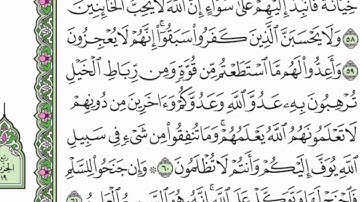 خِيَانَةً فَٱنۢبِذْ إِلَيْهِمْ عَلَىٰ سَوَآءٍ إِنَّ ٱللَّهَ لَا يُحِبُّ ٱلْخَآئِنِينَ
٥٨ وَلَا يَحْسَبَنَّ ٱلَّذِينَ كَفَرُوا۟ سَبَقُوٓا۟ إِنَّهُمْ لَا يُعْجِزُونَ
٥٩ وَأَعِدُّوا۟ لَهُم مَّا ٱسْتَطَعْتُم مِّن قُوَّةٍ وَمِن رِّبَاطِ ٱلْخَيْلِ
تُرْهِبُونَ بِهِۦ عَدُوَّ ٱللَّهِ وَعَدُوَّكُمْ وَءَاخَرِينَ مِن دُونِهِمْ
لَا تَعْلَمُونَهُمُ ٱللَّهُ يَعْلَمُهُمْ وَمَا تُنفِقُوا۟ مِن شَىْءٍ فِى سَبِيلِ
ٱللَّهِ يُوَفَّ إِلَيْكُمْ وَأَنتُمْ لَا تُظْلَمُونَ ٦٠ وَإِن جَنَحُوا۟ لِلسَّلْمِ
فَٱجْنَحْ لَهَا وَتَوَكَّلْ عَلَى ٱللَّهِ إِنَّهُۥ هُوَ ٱلسَّمِيعُ ٱلْعَلِيمُ ٦١